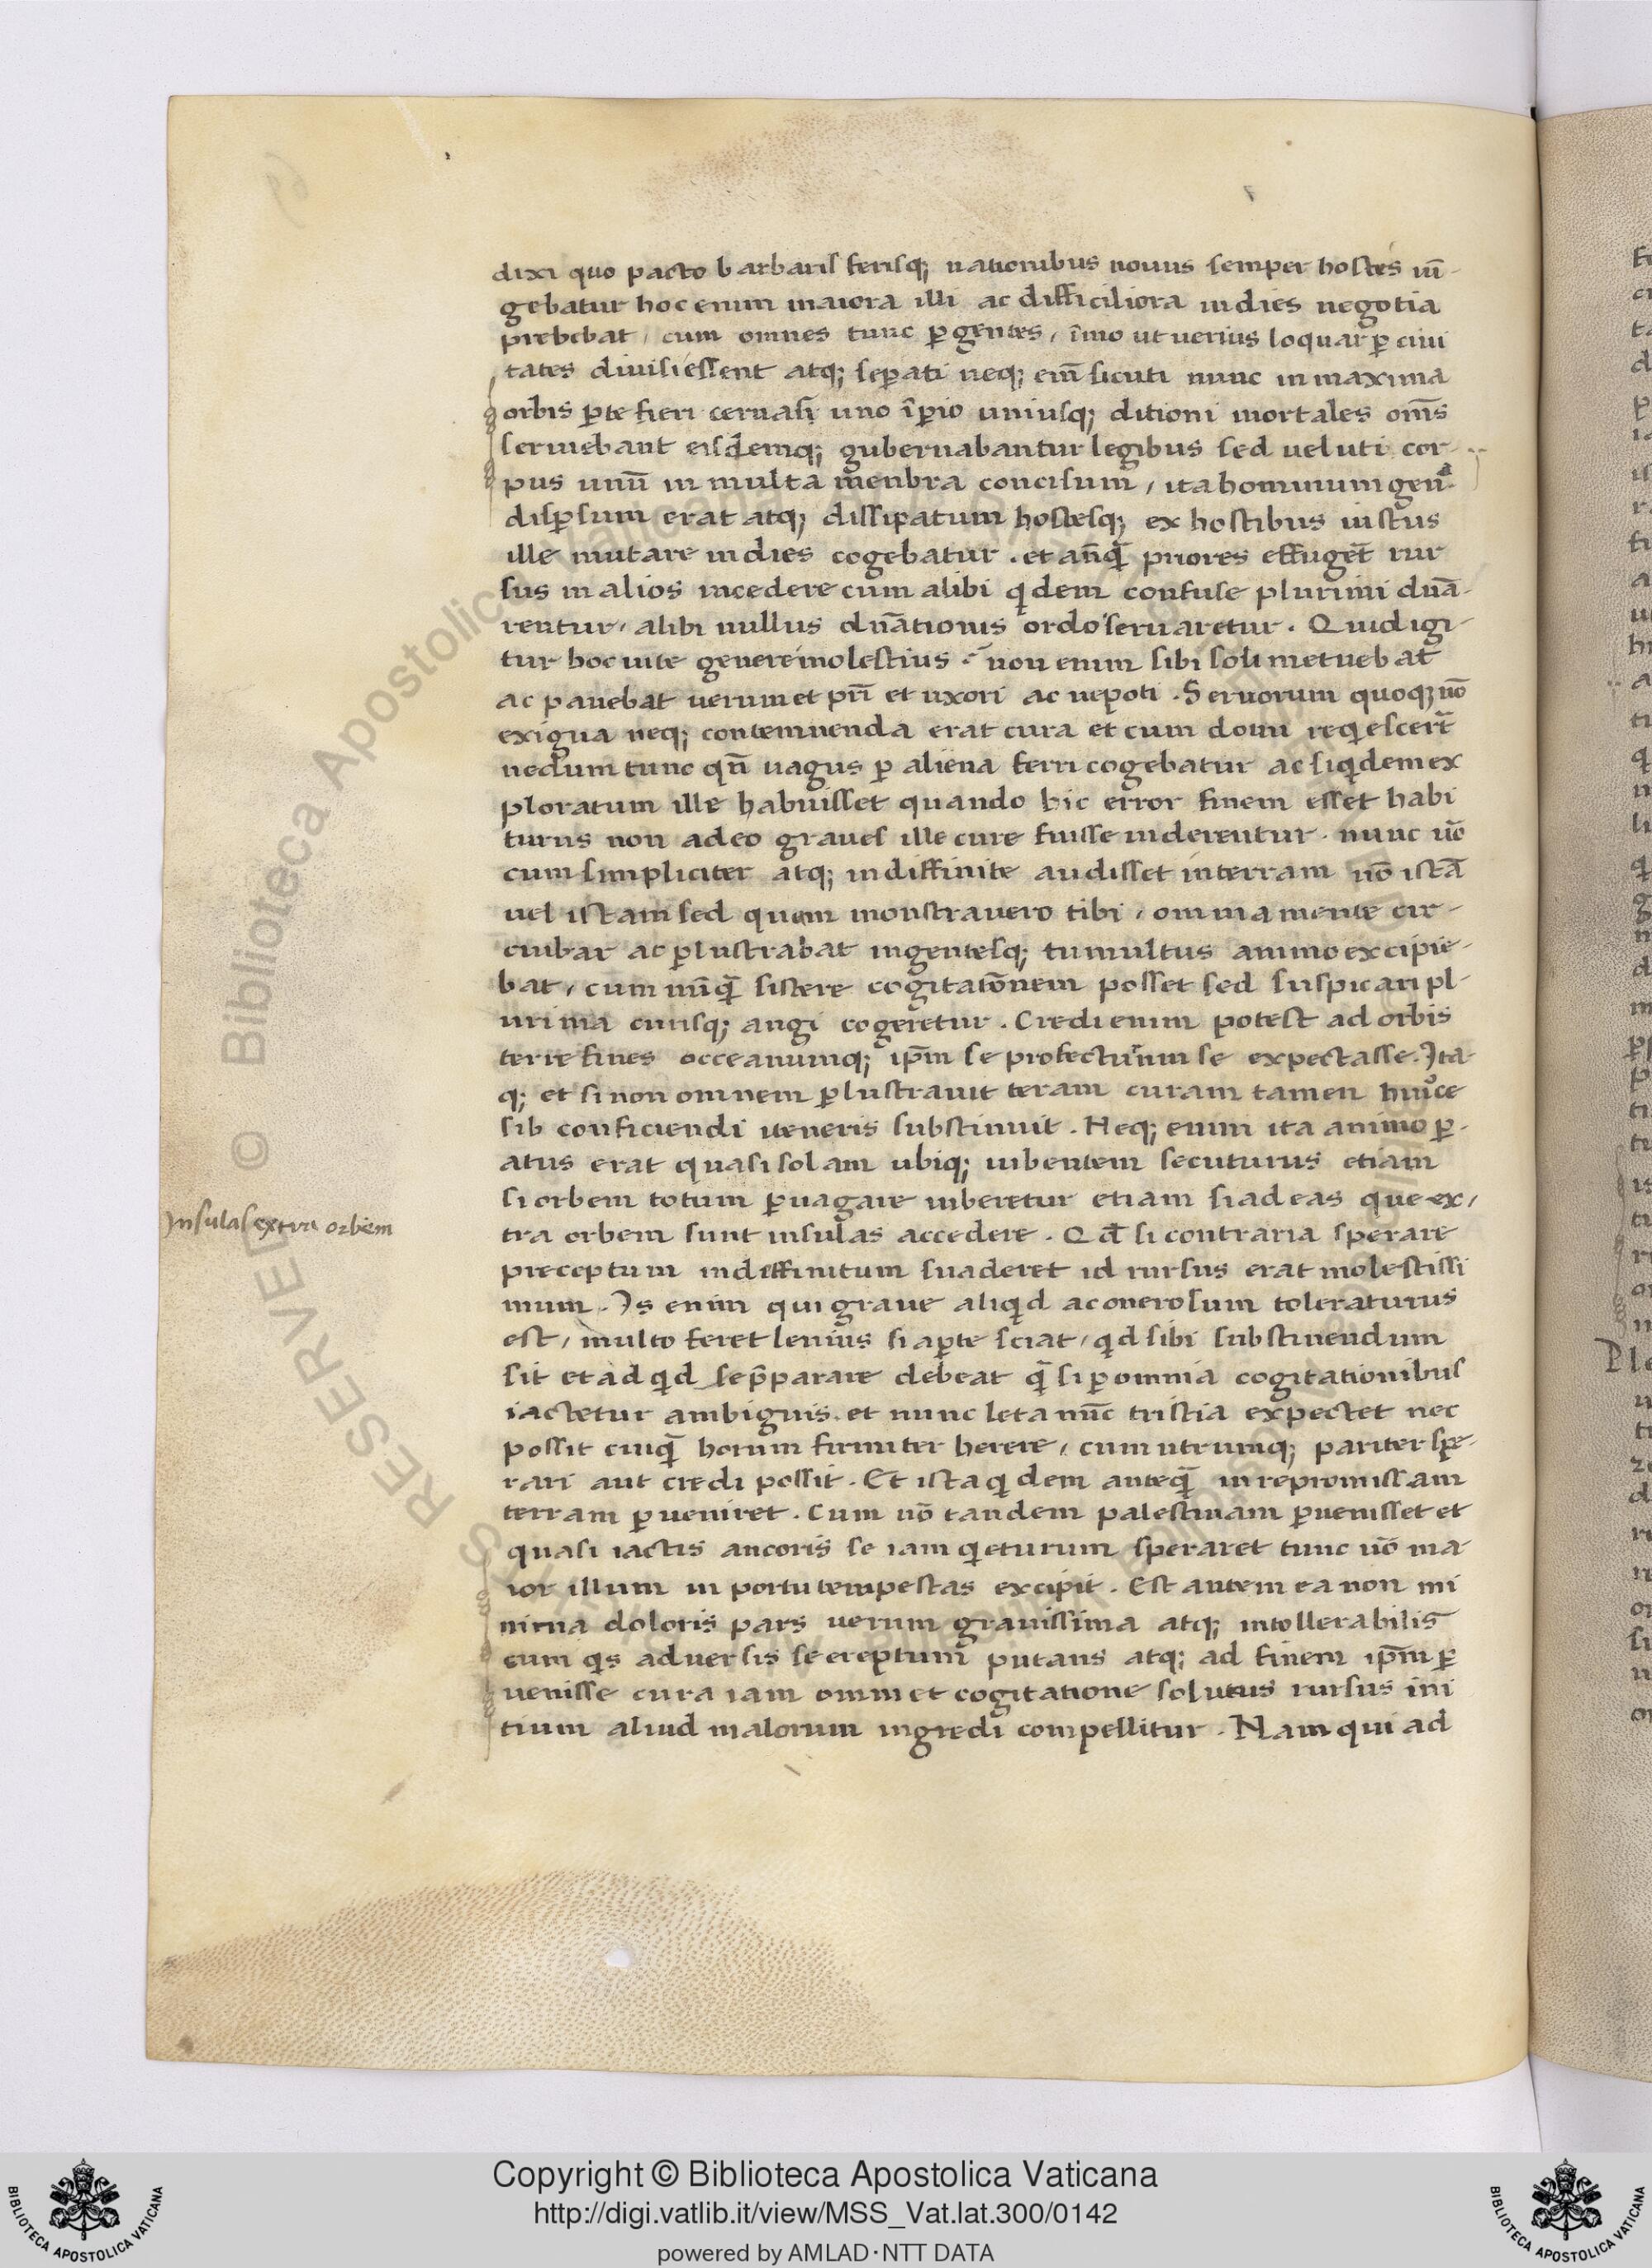 dixi quo pacto barbaris ferisq; nationibus nouus semper hostes iū-
gebatur hoc enim maiora illi ac difficiliora indies negotia
prebebat, cum omnes tunc ꝑ gentes, īmo ut uerius loquar ꝑ ciui
tates diuisi essent atq; seꝑati neq; em̄ sicuti nunc in maxima
orbis ꝑte fieri uno īꝑio uniusq; ditioni mortales om̄s
seruiebant eisdemq; gubernabantur legibus sed ueluti cor-
pus unū in multa menbra concisum, ita hominum gen
disꝑsum erat atq; dissipatum hostesq; ex hostibus iustus
ille mutare indies cogebatur . et an̄q̄ priores effuget̄ rur
sus in alios incedere cum alibi qdem confuse plurimi dn̄a-
rentur, alibi nullus dn̄ationis ordo seruaretur . Quid igi-
tur hoc uite genere molestius non enim sibi soli metuebat
ac pauebat uerum et pr̄i et uxori ac nepoti . Seruorum quoq; nō
exigua neq; contemnenda erat cura et cum domi reqescer̄t
nedum tunc qn̄ uagus ꝑ aliena ferri cogebatur ac siqdem ex
ploratum ille habuisset quando hic error finem esset habi
turus non adeo graues ille cure fuisse uiderentur . nunc uō
cum simpliciter atq; indiffinite audisset in terram nō istā
uel istam sed quam monstrauero tibi, omnia mente cir-
cuibat ac ꝑlustrabat ingentesq; tumultus animo excipie-
bat, cum nūq̄ sistere cogitatōnem posset sed suspicari pl-
urima cuiusq; angi cogeretur . Credi enim potest ad orbis
terre fines occeanumq; ip̄m se profecturum se expectasse. Ita-
q; et si non omnem ꝑlustrauit teram curam tamen
sib conficiendi iteneris substinuit . Neq; enim ita animo ꝑ-
atus erat quasi solam ubiq; iubentem secuturus etiam
si orbem totum ꝑuagare iuberetur etiam si ad eas que ex,
Insulas extra orbem
tra orbem sunt insulas accedere . Qd̄ si contraria sperare
preceptum indiffinitum suaderet id rursus erat molestissi
mum . Is enim qui graue aliqd ac onerosum toleraturus
est, multo feret lenius si aꝑte sciat, qd sibi substinendum
sit et ad qd se p̄parare debeat q̄ si ꝑ omnia cogitationibus
iactetur ambiguis . et nunc leta nūc tristia expectet nec
possit cuiq̄ horum firmiter herere, cum utrumq; pariter spe-
rari aut credi possit . Et ista qdem anteq̄ in repromissam
terram ꝑueniret . Cum uō tandem palestinam ꝑuenisset et
quasi iactis ancoris se iam qeturum speraret tunc uō ma-
ior illum in portu tempestas excipit . Est autem ea non mi
nima doloris pars uerum grauissima atq; intollerabilis
cum qs aduersis se ereptum putans atq; ad finem ip̄m ꝑ
uenisse cura iam omni et cogitatione solutus rursus ini
tium aliud malorum ingredi compellitur . Nam qui ad
© Biblioteca Apostolica Vaticana
Copyright © Biblioteca Apostolica Vaticana
http://digi.vatlib.it/view/MSS_Vat.lat.300/0142
powered by AMLAD·NTT DATA
BIBLIOTECA APOSTOLICA VATICANA
BIBLIOTECA APOSTOLICA VATICANA